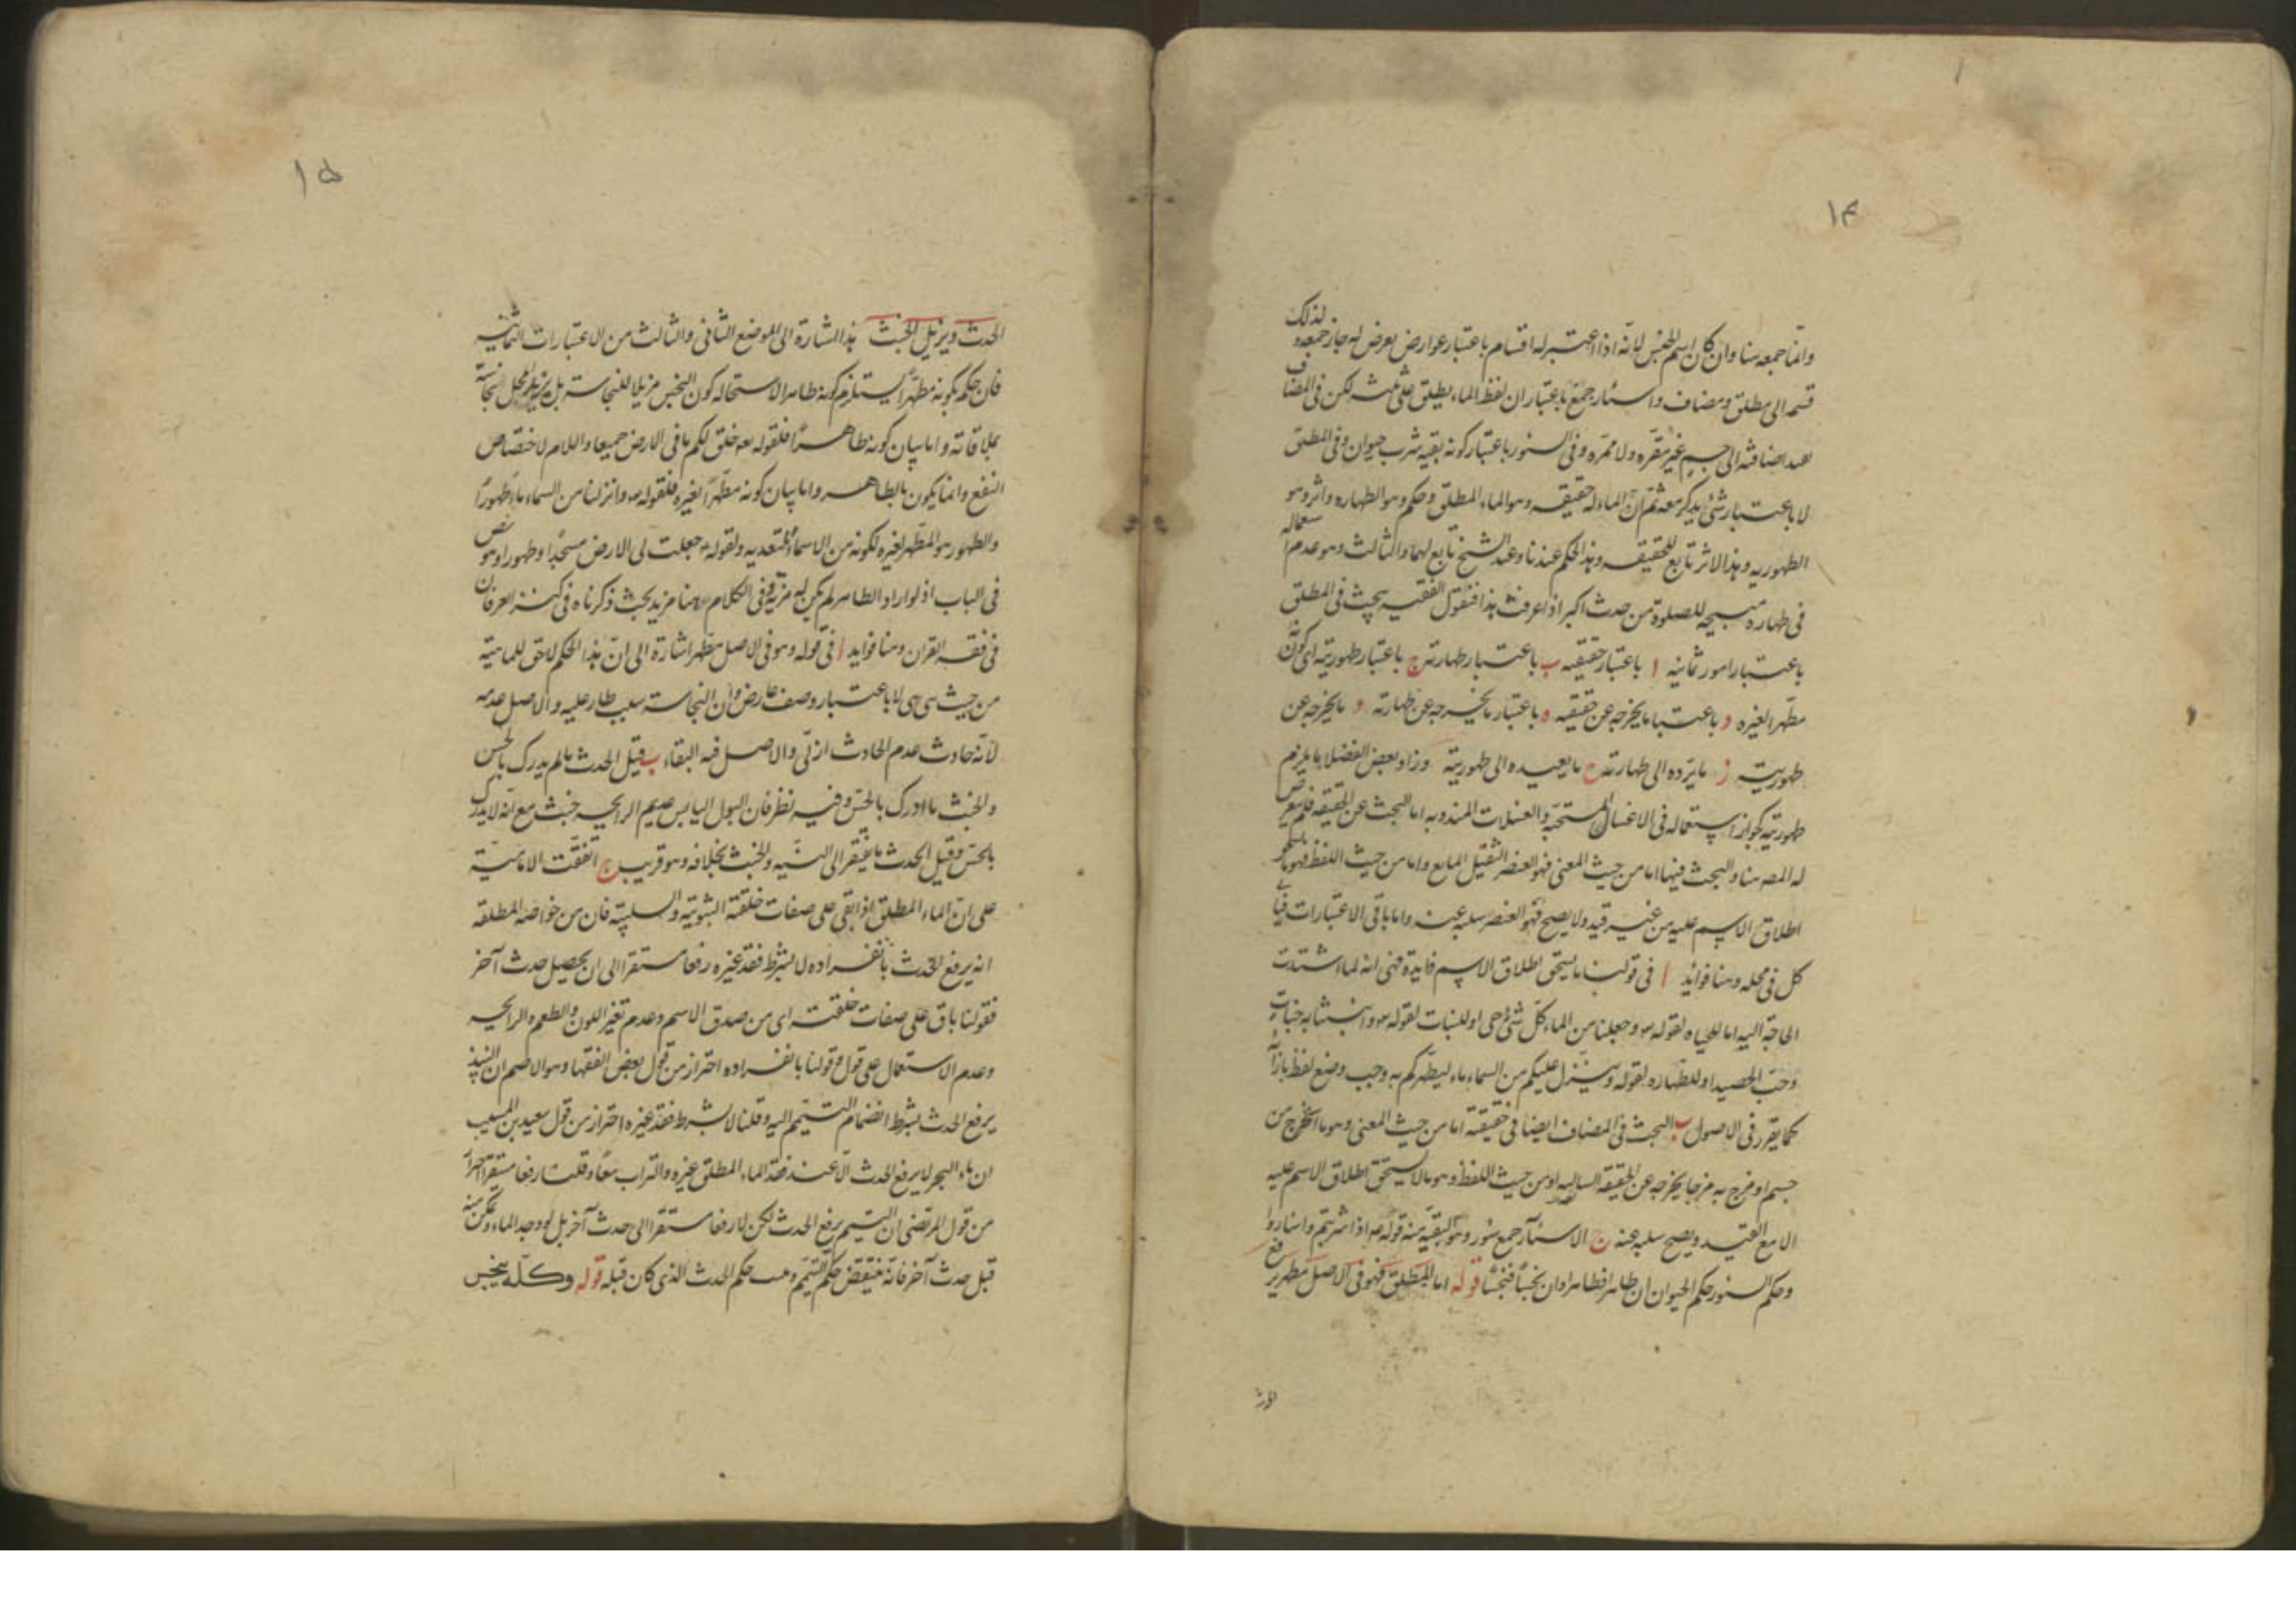 ١٤
وانما جمعه هنا وان كان اسم الجنس لانه اذا اعتبر له اقسام باعتبار عوارض يعرض له جاز جمعه ولذلك
قسمه الى مطلق ومضاف واسئار جمع باعتبار ان لفظ الماء يطلق على ثلثه لكن فى المضاف
بعد اضافته الى جسم غير مقره ولا ممره وفى السئور باعتبار كونه بقيه شرب حيوان وفى المطلق
لا باعتبار شئ يذكر معه ثم ان الماء له حقيقه وهو الماء المطلق وحكم وهو الطهاره واثر وهو
الطهوريه وهذا الاثر تابع للحقيقه وهذا الحكم عندنا وعند الشيخ تابع لهما والثالث وهو عدم استعماله
فى طهاره مبيحه للصلوة من حدث اكبر اذا عرفت هذا فنقول الفقيه يبحث فى المطلق
باعتبار امور ثمانيه ا باعتبار حقيقته ب باعتبار طهارته ج باعتبار طهوريته اى كونه
مطهرا لغيره د باعتبار ما يخرجه عن حقيقته ه باعتبار ما يخرجه عن طهارته و ما يخرجه عن
طهوريته ز ما يرده الى طهارته ح ما يعيده الى طهوريته وزاد بعض الفضلا ما يلزم
طهوريته كجواز استعماله فى الاغسال المستحبه والغسلات المندوبه اما البحث عن الحقيقه فلم يتعرض
له المصر هنا والبحث فيها اما من حيث المعنى فهو العنصر الثقيل المايع واما من حيث اللفظ فهو ما يستحق
اطلاق الاسم عليه من غير قيد ولا يصح فهو العنصر سلبه عنه واما باقى الاعتبارات فياتى
كل فى محله وهنا فوايد ا فى قولنا ما يستحق اطلاق الاسم فايدة فهى انه لما اشتدت
الحاجة اليه اما للحياه لقوله تع وجعلنا من الماء كل شئ حى او للنبات لقوله تع وانبتنا به جنات
وحب الحصيد او للطهاره لقوله وينزل عليكم من السماء ماء ليطهركم به وجب وضع لفظ بازائه
كما يقرر فى الاصول ب البحث فى المضاف ايضا فى حقيقته اما من حيث المعنى وهو ما استخرج من
جسم او مزج به مزجا يخرجه عن الحقيقه السالبه او من حيث اللفظ وهو ما لا يستحق اطلاق الاسم عليه
الا مع القيد ويصح سلبه عنه ج الاسئار جمع سئور وهو البقيه منه قوله ص اذا شربتم واسئاروا
وحكم السئور حكم الحيوان ان طاهرا فطاهر وان نجسا فنجسا قوله اما المطلق فهو فى الاصل مطهر يرفع
الحدث
١٥
الحدث ويزيل الخبث هذا اشارة الى الموضع الثانى والثالث من الاعتبارات الثمانيه
فان حكم بكونه مطهرا يستلزم كونه طاهر الاستحاله كون النجس مزيلا للنجاسة بل يزيد محل النجاسة
بملاقاته واما بيان كونه طاهرا فلقوله تع خلق لكم ما فى الارض جميعا واللام لاختصاص
النفع وانما يكون بالطاهر واما بيان كونه مطهرا لغيره فلقوله تع وانزلنا من السماء ماء طهورا
والطهور هو المطهر لغيره لكونه من الاسماء المتعديه ولقوله ص جعلت لى الارض مسجدا وطهورا وهو نص
فى الباب اذ لو اراد الطاهر لم يكن له مزية وفى الكلام ههنا مزيد بحث ذكرناه فى كنز العرفان
فى فقه القران وهنا فوايد ا فى قوله وهو فى الاصل مطهر اشارة الى ان هذا الحكم لاحق للماهية
من حيث هى هى لا باعتبار وصف عارض وان النجاسة سلب طار عليه والاصل عدمه
لانه حادث عدم الحادث ازلى والاصل فيه البقاء ب قيل الحدث ما لم يدرك بالحس
والخبث ما ادرك بالحس وفيه نظر فان البول اليابس عديم الرايحه خبث مع انه لا يدرك
بالحس وقيل الحدث ما يفتقر الى النيه والخبث بخلافه وهو قريب ج اتفقت الامامية
على ان الماء المطلق اذا بقى على صفات خلقته الثبوتية والسلبية فان من خواصه المطلقه
انه يرفع الحدث بانفراده لا بشرط فقد غيره رفعا مستقرا الى ان يحصل حدث آخر
فقولنا باق على صفات خلقته اى من صدق الاسم وعدم تغير اللون والطعم والرايحه
وعدم الاستعمال على قول وقولنا بانفراده احتراز من قول بعض الفقها وهو الاصم ان النبيذ
يرفع الحدث بشرط انضمام التيمم اليه وقلنا لا بشرط فقد غيره احتراز من قول سعيد بن المسيب
ان ماء البحر لا يرفع الحدث الا عند فقد الماء المطلق غيره والتراب معا وقلنا رفعا مستقرا احترازا
من قول المرتضى ان التيمم يرفع الحدث لكن لا رفعا مستقرا الى حدث آخر بل لو وجد الماء وتمكن منه
قبل حدث آخر فانه ينتقض حكم التيمم وعسر حكم الحدث الذى كان قبله قوله وكله ينجس